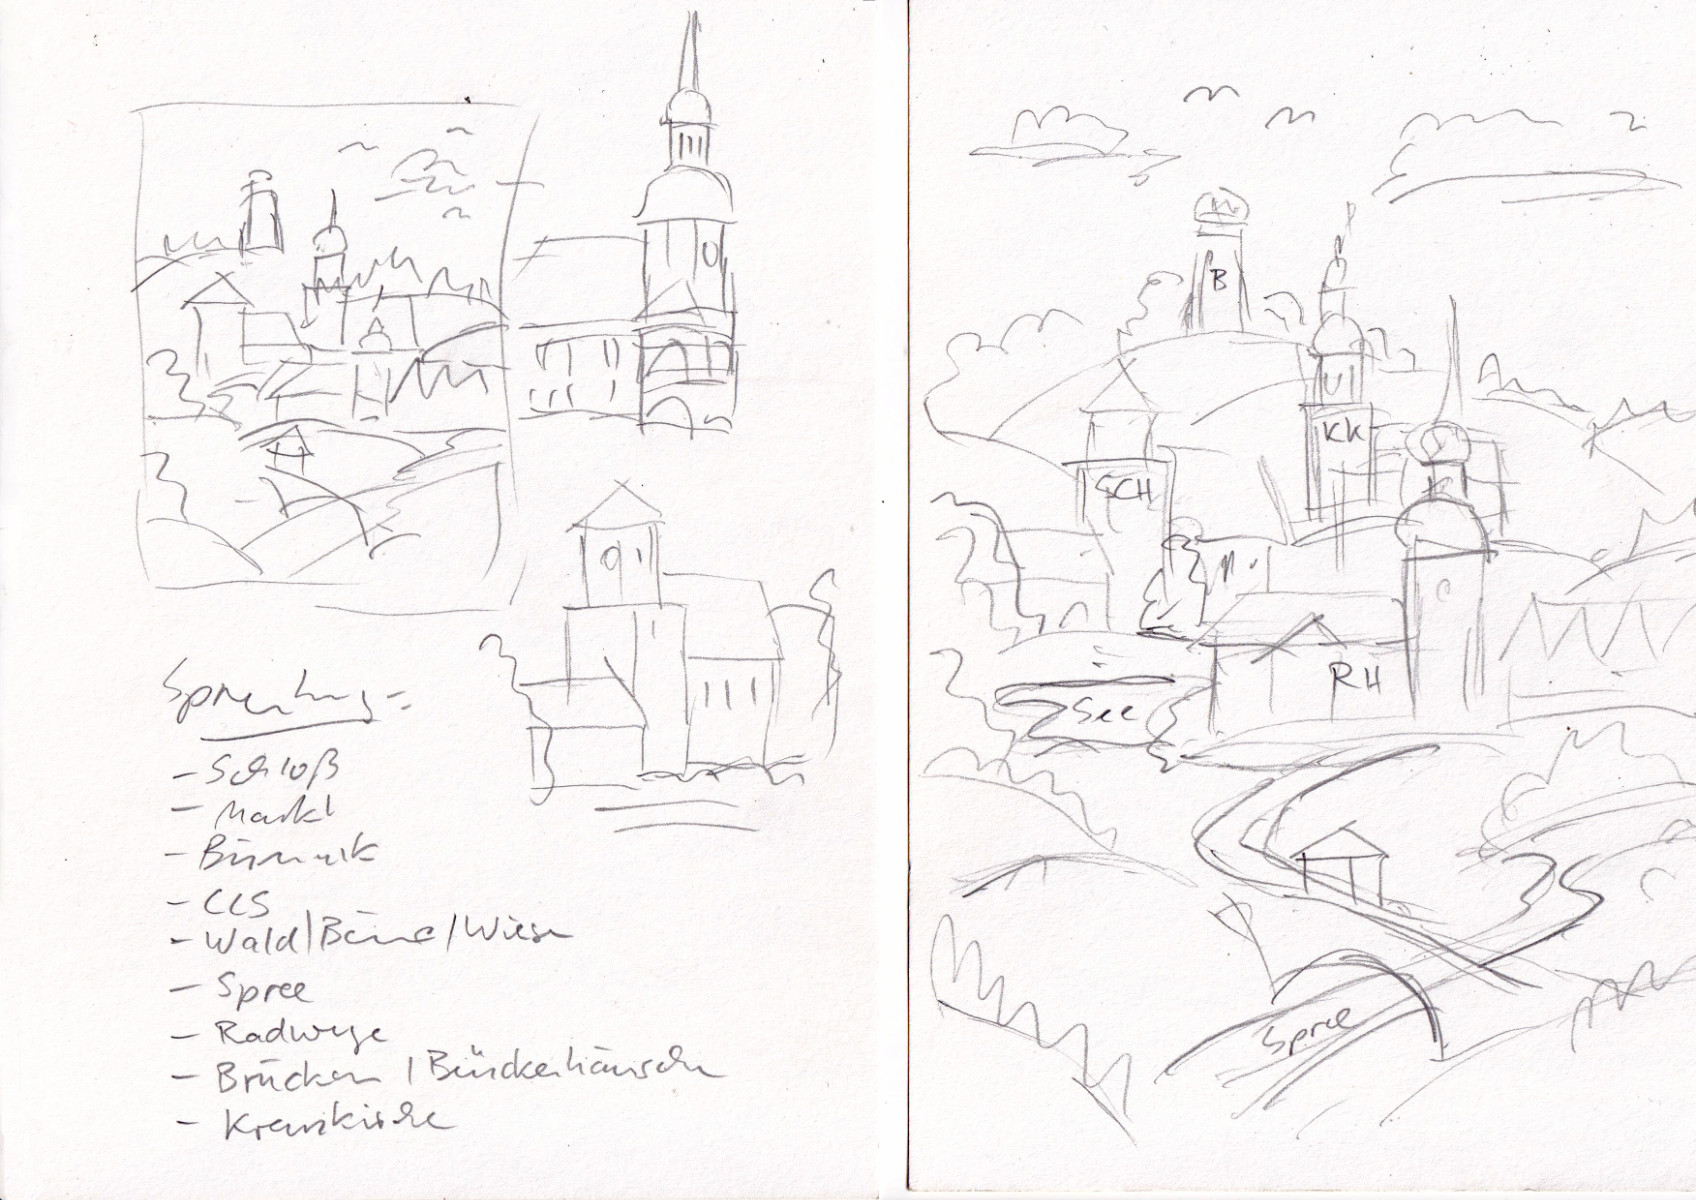 Spremberg:
- Schloß
- Markt
- Bismark
- CCS
- Wald/Bäume/Wiese
- Spree
- Radwege
- Brücken / Brückenhäuschen
- Kreuzkirche
B
KK
SCH
RH
See
Spree